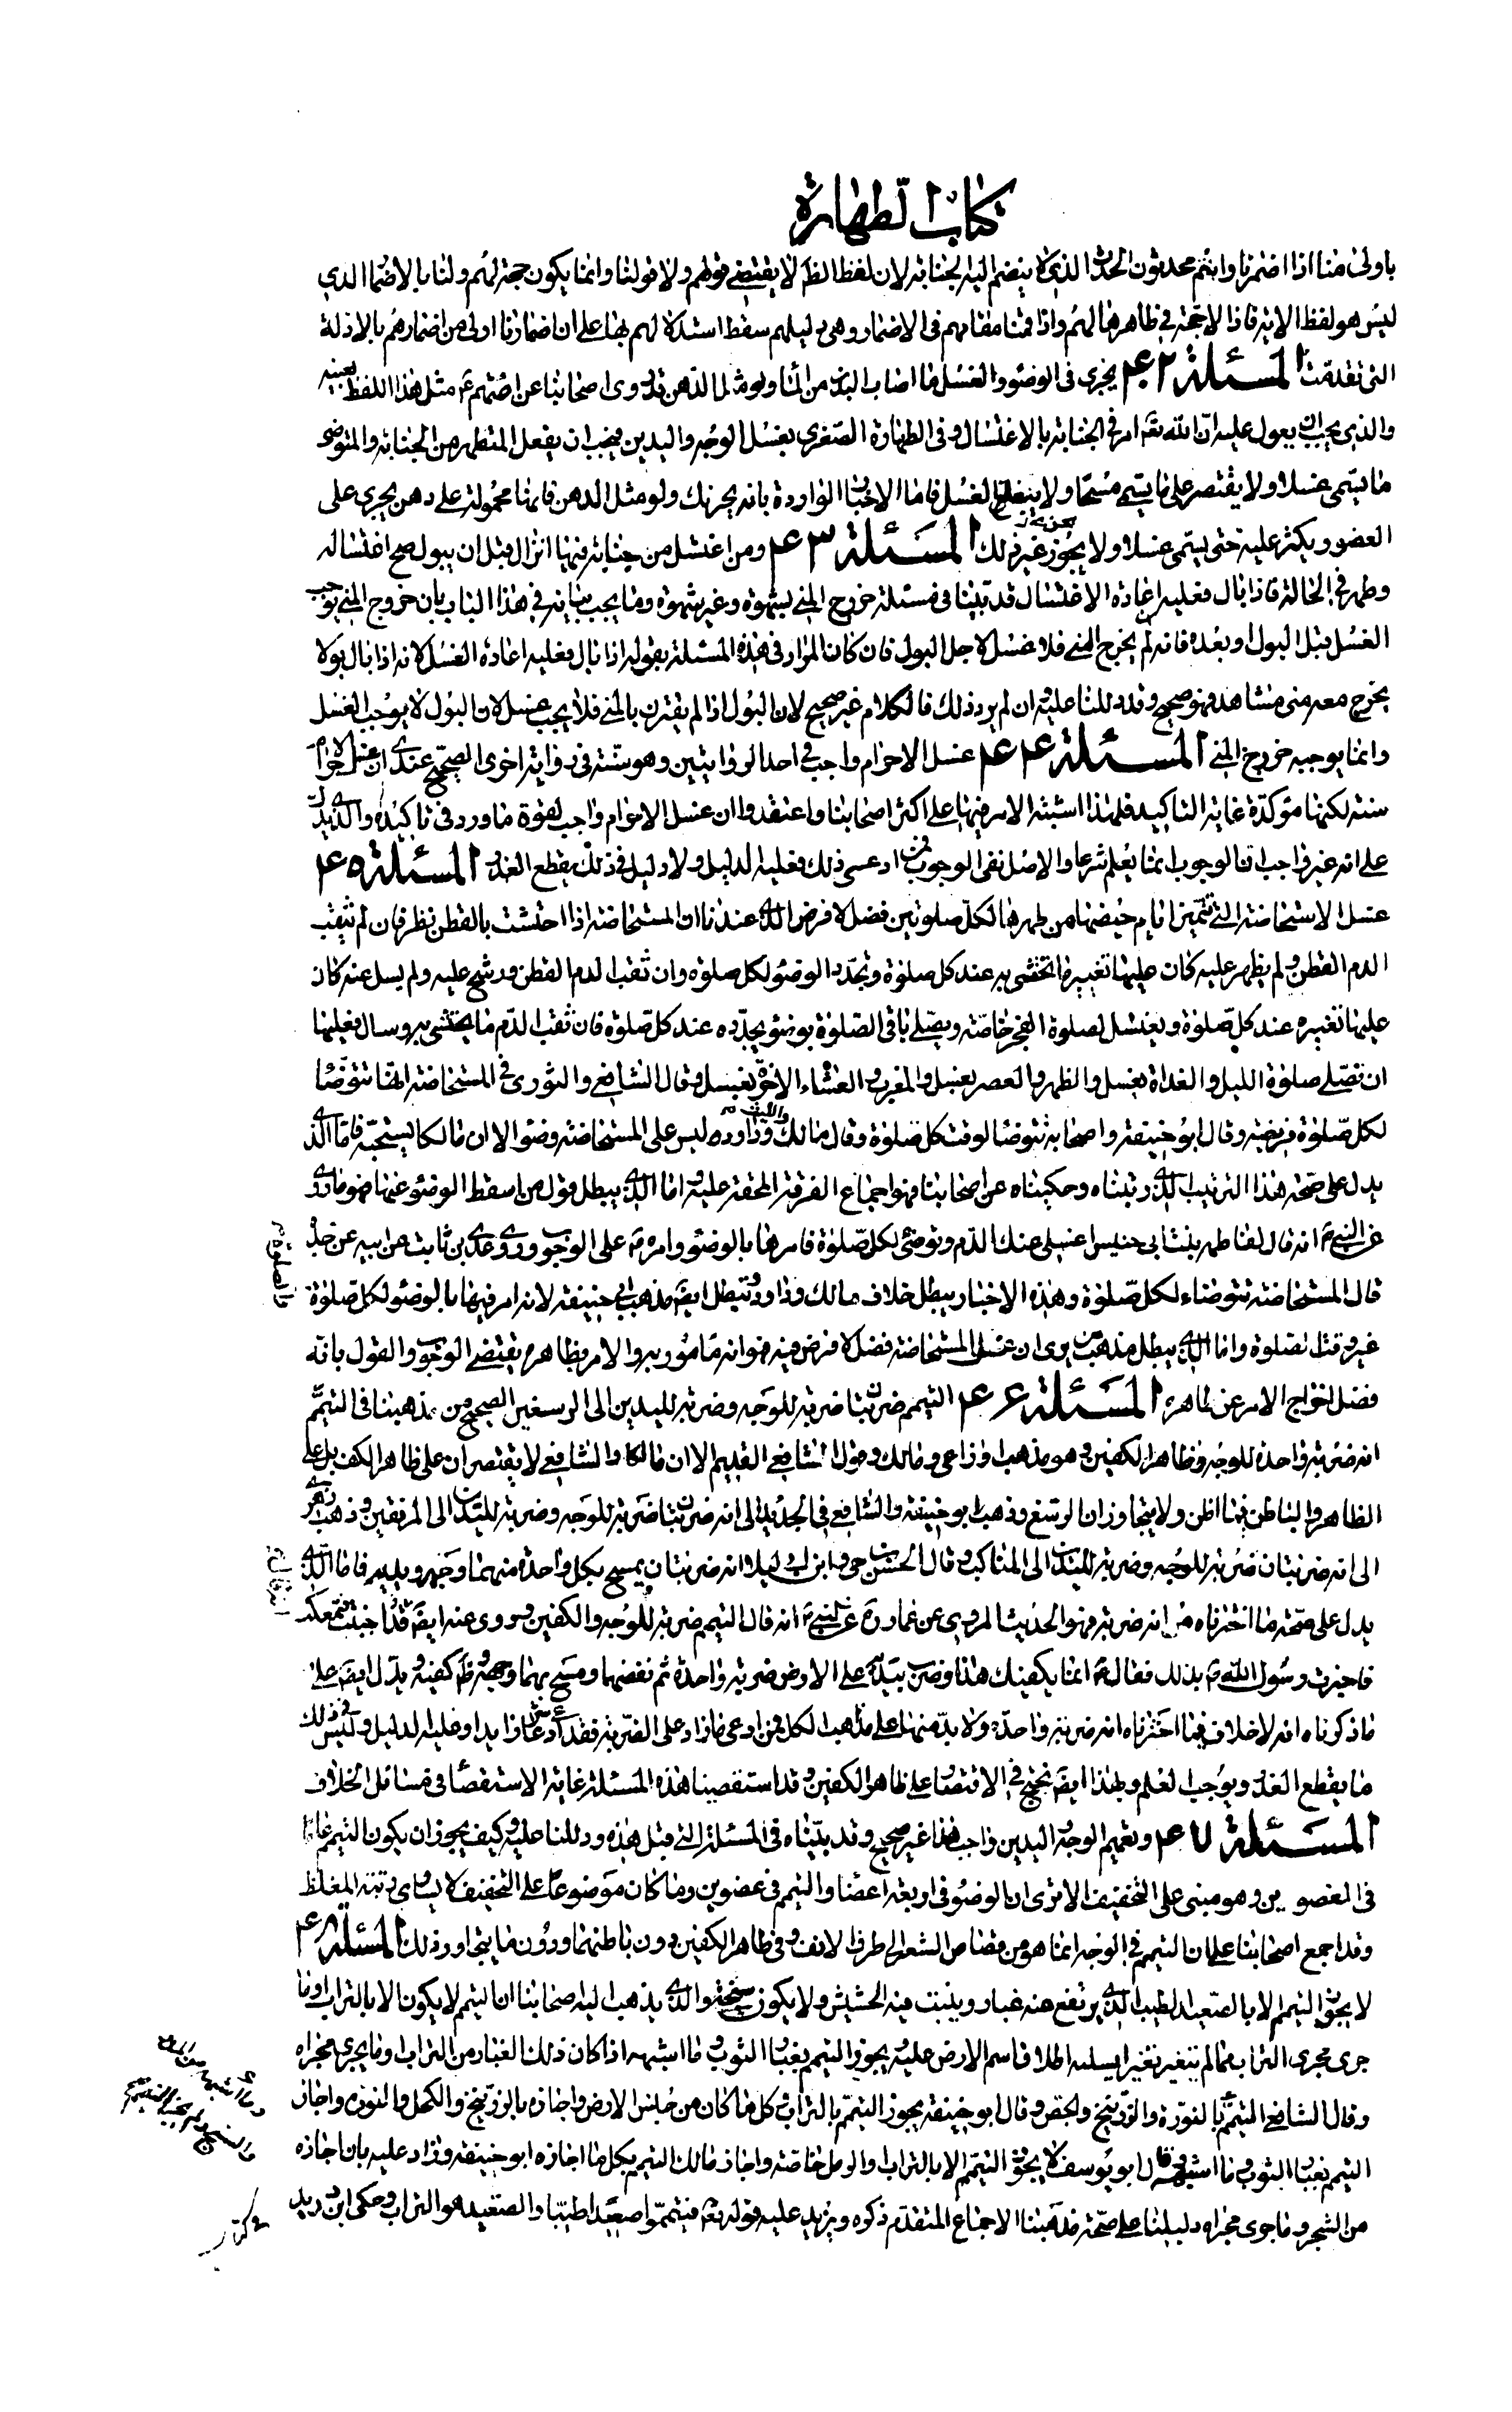 كتاب الطهارة
باولى منا اذا اضمرنا وانتم محدثون الحدث الذى لا ينضم اليه الجنابة لان لفظ الظاهر لا يقتضى قولهم ولا قولنا وانما يكون حجة لهم ولنا بالاضمار الذى
ليس هو لفظ الاية فاذا لا حجة فى ظاهرها لهم واذا قمنا مقامهم فى الاضمار وهى دليلهم سقط استدلالهم بها على ان اضمارنا اولى من اضمارهم بالادلة
التى تقدمت المسئلة ۴۲ يجزى فى الوضوء والغسل ما اصاب البدن من الماء ولو مثل الدهن قد روى اصحابنا عن ائمتهم ع مثل هذا اللفظ بعينه
والذى يجب ان يعول عليه ان الله تعه امر فى الجنابة بالاغتسال وفى الطهارة الصغرى بغسل الوجه واليدين فيجب ان يفعل المتطهر من الجنابة والمتوضى
ما يسمى غسلا ولا يقتصر على ما يسمى مسحا ولا يبلغ الغسل فاما الاخبار الواردة بانه يجزيك ولو مثل الدهن فانها محمولة على دهن يجرى على
العضو ويكثر عليه حتى يسمى غسلا ولا يجوز غير ذلك المسئلة ۴۳ ومن اغتسل من جنابة فيها انزال قبل ان يبول صح اغتساله
وطهر فى الحالة فاذا بال فعليه اعادة الاغتسال قد بينا فى مسئلة خروج المنى بشهوة وغير شهوة وما يجب بيانه فى هذا الباب بان خروج المنى يوجب
الغسل قبل البول او بعده فانه لم يخرج المنى فلا غسل لاجل البول فان كان المراد فى هذه المسئلة بقوله اذا بال فعليه اعادة الغسل لانه اذا بال بولا
يخرج معه منى مشاهد فهو صحيح وقد دللنا عليه وان لم يرد ذلك فالكلام غير صحيح لان البول اذا لم يقترن بالمنى فلا يجب غسل لان البول لا يوجب الغسل
وانما يوجبه خروج المنى المسئلة ۴۴ غسل الاحرام واجب فى احد الروايتين وهو سنة فى رواية اخرى الصحيح عندى ان غسل الاحرام
سنة لكنها مؤكدة غاية التاكيد فلهذا اشتبه الامر فيها على اكثر اصحابنا واعتقدوا ان غسل الاحرام واجب لقوة ما ورد فى تاكيده والذى يدل
على انه غير واجب ان الوجوب انما يعلم شرعا والاصل نفى الوجوب فمن ادعى ذلك فعليه الدليل ولا دليل فى ذلك يقطع العذر المسئلة ۴۵
غسل الاستحاضة التى تتميز ايام حيضها من طهرها لكل صلوتين فضل لا فرض الذى عندنا ان المستحاضة اذا احتشت بالقطن نظر فان لم يثقب
الدم القطن ولم يظهر عليه كان عليها تغيير ما تحتشى به عند كل صلوة وتجدد الوضوء لكل صلوة وان ثقب الدم القطن ورشح عليه ولم يسل عنه كان
عليها تغييره عند كل صلوة ويغتسل لصلوة الفجر خاصة ويصلى باقى الصلوة بوضوء يجدده عند كل صلوة فان ثقب الدم ما يحتشى به وسال فعليها
ان تصلى صلوة الليل والغداة بغسل والظهر والعصر بغسل والمغرب والعشاء الاخرة بغسل وقال الشافعى والثورى فى المستحاضة انها تتوضأ
لكل صلوة فريضة وقال ابو حنيفة واصحابه تتوضأ لوقت كل صلوة وقال مالك والليث وداود ليس على المستحاضة وضوء الا ان مالكا يستحبه فاما الذى
يدل على صحة هذا الترتيب الذى رتبناه وحكيناه عن اصحابنا فهو اجماع الفرقة المحقة عليه واما الذى يبطل قول من اسقط الوضوء عنها فهو ما روى
عن النبى ص انه قال لفاطمة بنت ابى حبيش اغسلى عنك الدم وتوضئى لكل صلوة فامرها بالوضوء وامره ص على الوجوب وروى عدى بن ثابت عن ابيه عن جده
قال المستحاضة تتوضاء لكل صلوة وهذه الاخبار يبطل خلاف مالك وداود ويبطل ايضا مذهب ابى حنيفة لانه امر فيها بالوضوء لكل صلوة
غير وقت الصلوة واما الذى يبطل مذهب من يرى ان غسل المستحاضة فضل لا فرض فيه فهو انه مامور به والامر بظاهره يقتضى الوجوب والقول بانه
فضل اخراج الامر عن ظاهره المسئلة ۴۶ التيمم ضربتان ضربة للوجه وضربة لليدين الى الرسغين الصحيح من مذهبنا فى التيمم
انه ضربة واحدة للوجه وظاهر الكفين وهو مذهب اوزاعى ومالك وقول الشافعى القديم الا ان مالكا والشافعى لا يقتصران على ظاهر الكف بل على
الظاهر والباطن فيما اظن ولا يتجاوزان الرسغ وذهب ابو حنيفة والشافعى فى الجديد الى انه ضربتان ضربة للوجه وضربة لليدين الى المرفقين وذهب الزهرى
الى انه ضربتان ضربة للوجه وضربة لليدين الى المناكب وقال الحسن بن حى وابن ابى ليلا انه ضربتان يمسح بكل واحدة منهما وجهه ويديه فاما الذى
يدل على صحة ما اخترناه من انه ضربة فهو الحديث المروى عن عمار ره عن النبى ص انه قال التيمم ضربة للوجه والكفين وروى عنه ايضا قال اجنبت فتمعكت
فاخبرت رسول الله ص بذلك فقال ص انما يكفيك هذا وضرب بيديه على الارض ضربة واحدة ثم نفضهما ومسح بهما وجهه وظاهر كفيه ويدل ايضا على
ما ذكرناه انه لا خلاف فيما اخترناه انه ضربة واحدة ولا بد منها على مذهب الكل فمن ادعى ما زاد على الضربة فقد ادعى شرعا زايدا وعليه الدليل وليس فى ذلك
ما يقطع العذر ويوجب العلم وبهذا ايضا نحتج فى الاقتصار على ظاهر الكفين وقد استقصينا هذه المسئلة غاية الاستقصا فى مسائل الخلاف
المسئلة ۴۷ وتعميم الوجه واليدين واجب هذا غير صحيح وقد بيناه فى المسئلة التى قبل هذه ودللنا عليه وكيف يجوز ان يكون التيمم عاما
فى العضوين وهو مبنى على التخفيف الا ترى ان الوضوء فى اربعة اعضا والتيمم فى عضوين وما كان موضوعا على التخفيف لا يساوى رتبة المغلظ
وقد اجمع اصحابنا على ان التيمم فى الوجه انما هو من قصاص الشعر الى طرف الانف وفى ظاهر الكفين دون باطنهما ودون ما يتجاوز ذلك المسئلة ۴۸
لا يجوز التيمم الا بالصعيد الطيب الذى يرتفع منه غبار وينبت فيه الحشيش ولا يكون سبخة والذى يذهب اليه اصحابنا ان التيمم لا يكون الا بالتراب او ما
جرى مجرى التراب مما لم يتغير تغيرا يسلبه اطلاق اسم الارض عليه ويجوز التيمم بغبار الثوب وما اشبهه اذا كان ذلك الغبار من التراب او ما يجرى مجراه
وقال الشافعى التيمم بالنورة والزرنيخ والجص وقال ابو حنيفة يجوز التيمم بالتراب وكل ما كان من جنس الارض واجازه بالزرنيخ والكحل والنورة واجاز
التيمم بغبار الثوب وما اشبهه وقال ابو يوسف لا يجوز التيمم الا بالتراب والرمل خاصة واجاز مالك التيمم بكل ما اجازه ابو حنيفة وزاد عليه بان اجازه
من الشجر وما جرى مجراه دليلنا على صحة مذهبنا الاجماع المتقدم ذكره ويزيد عليه قوله تعه فتيمموا صعيدا طيبا والصعيد هو التراب وحكى ابن دريد